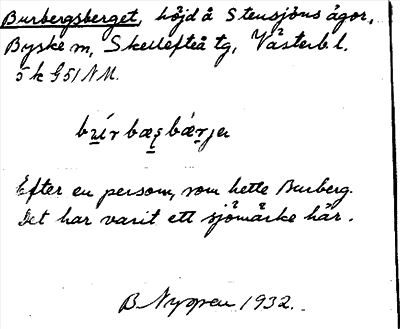 Burbergsberget, höjd å Stensjöns ägor,
Byske sn, Skellefteå tg, Västerb l.
5k G51 NM.
Efter en person, som hette Burberg.
Det har varit ett sjömärke här.
B. Nyman 1932.